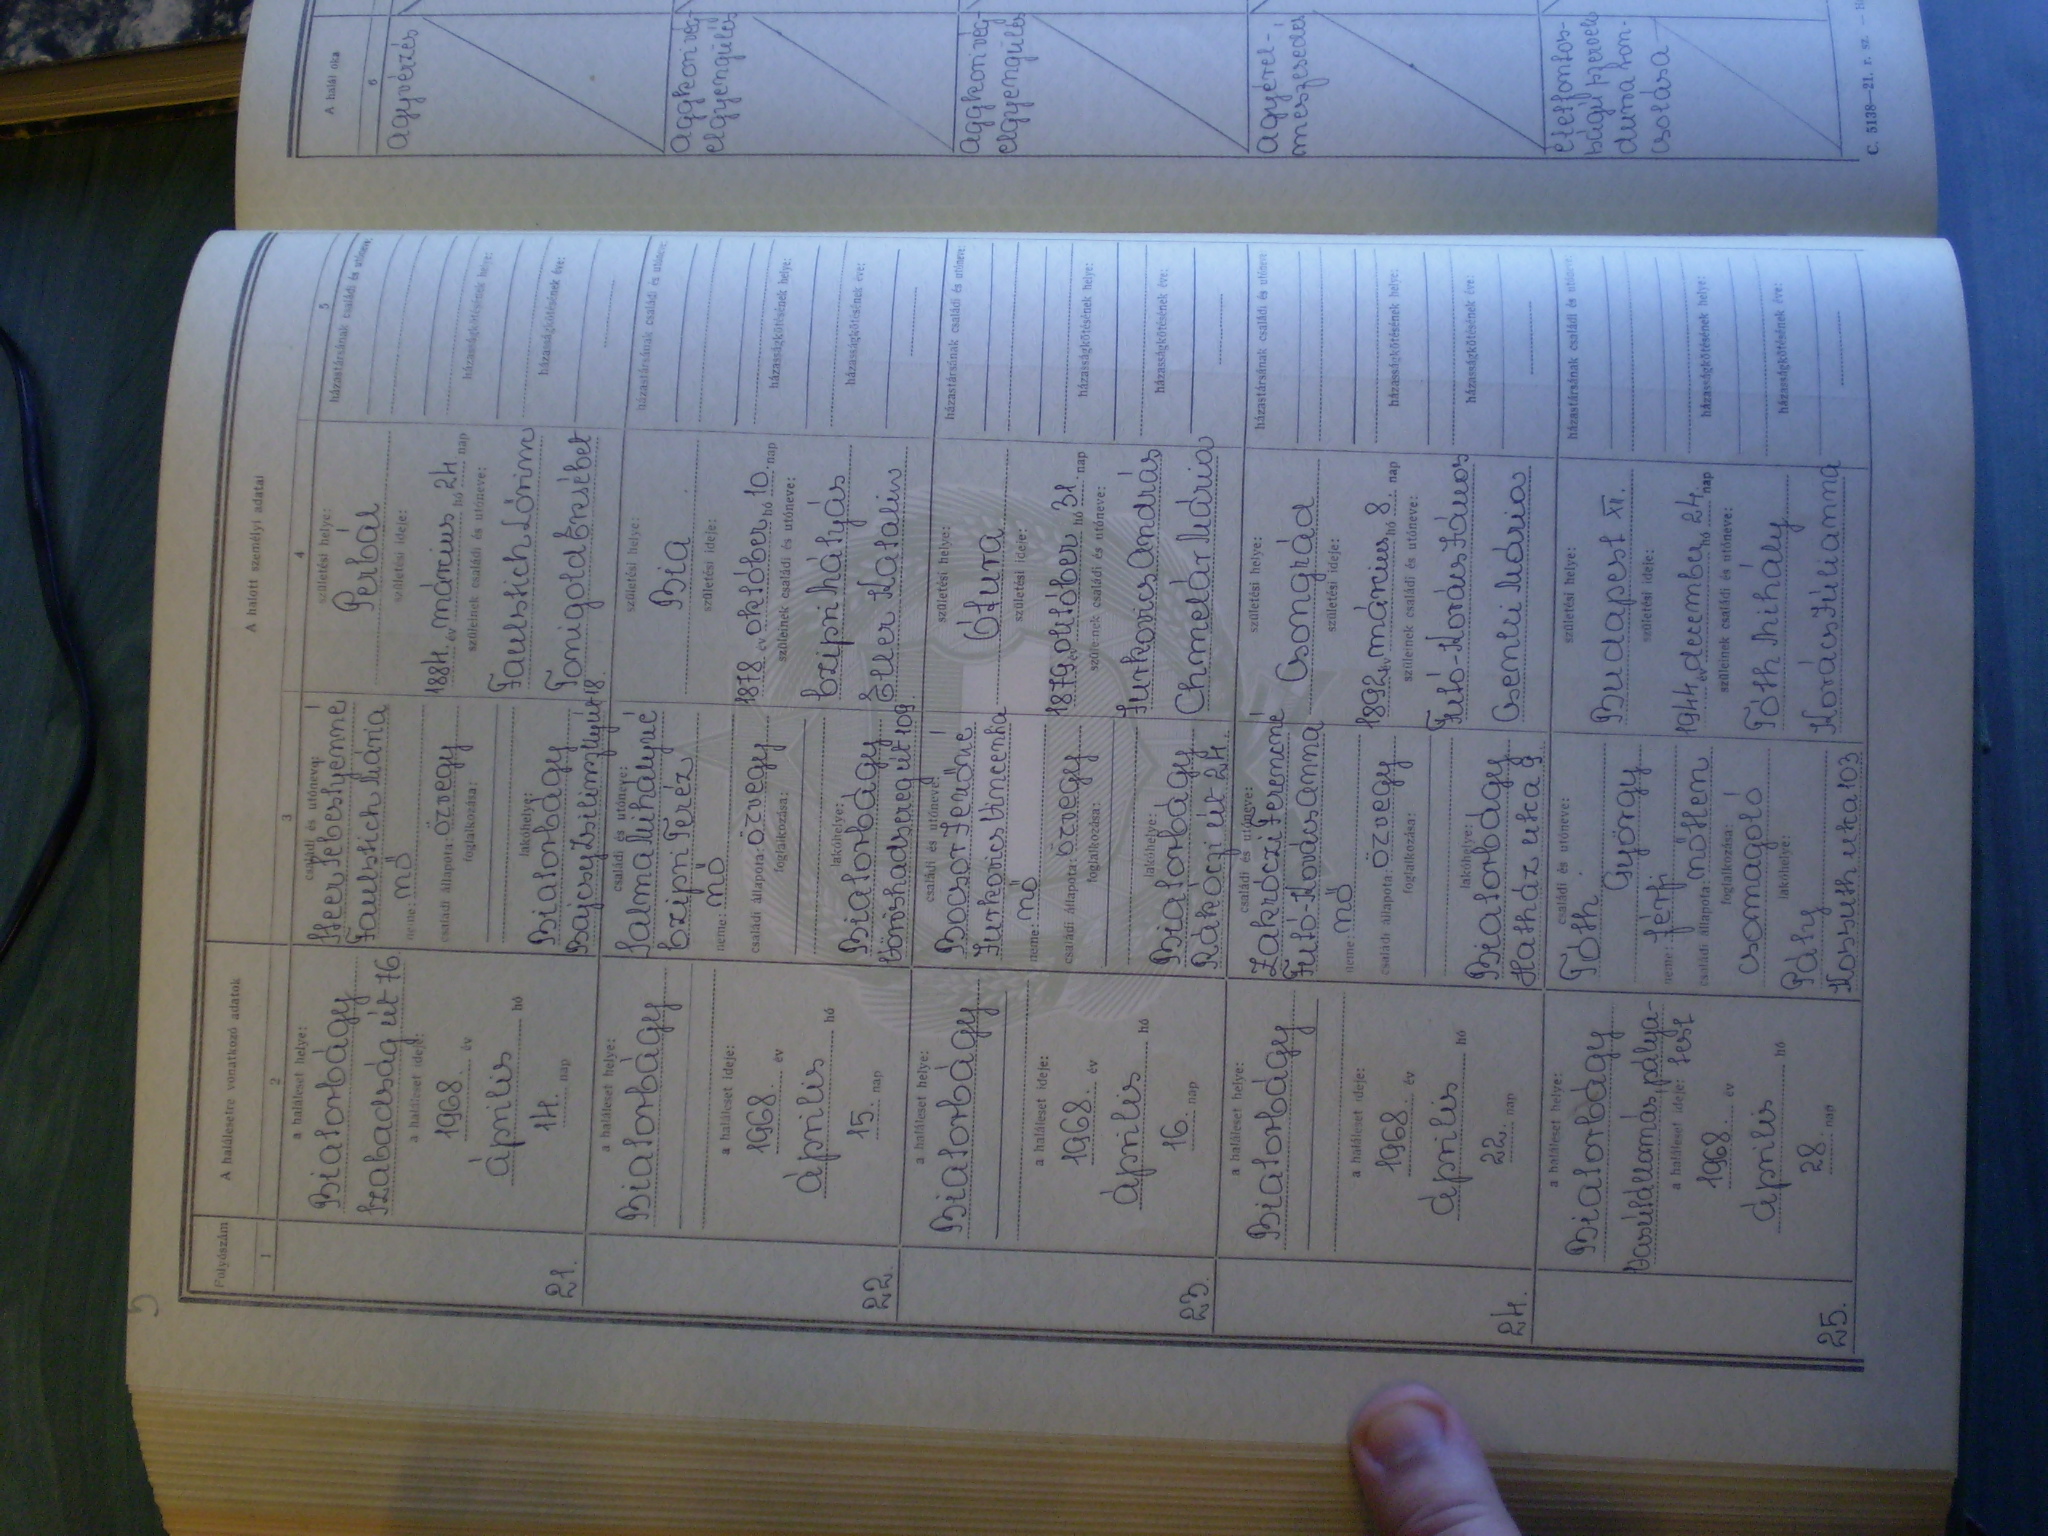 5
A halálesetre vonatkozó adatok
A halott személyi adatai
Folyószám
A halál oka
1
2
3
4
5
6
a haláleset helye:
Biatorbágy
Szabadság út 76
a haláleset ideje:
1968. év
április hó
14. nap
21.
családi és utóneve:
Heer Sebestyénné
Faustich Mária
neme: nő
családi állapota: özvegy
foglalkozása:
lakóhelye:
Biatorbágy
Bajcsy Zsilinszky út 18.
születési helye:
Perbál
születési ideje:
1884. év március hó 24 nap
szüleinek családi és utóneve:
Faustich Lőrinc
Tomigold Erzsébet
házastársának családi és utóneve:
házasságkötésének helye:
házasságkötésének éve:
agyvérzés
a haláleset helye:
Biatorbágy
a haláleset ideje:
1968. év
április hó
15. nap
22.
családi és utóneve:
Salma Mihályné
Szipri Teréz
neme: nő
családi állapota: özvegy
foglalkozása:
lakóhelye:
Biatorbágy
Vöröshadsereg út 109.
születési helye:
Bia
születési ideje:
1878. év október hó 10. nap
szüleinek családi és utóneve:
Szipri Mátyás
Éller Katalin
házastársának családi és utóneve:
házasságkötésének helye:
házasságkötésének éve:
aggkori vég-
elgyengülés
a haláleset helye:
Biatorbágy
a haláleset ideje:
1968. év
április hó
16. nap
23.
családi és utóneve:
Bocsor Jenőné
Jurkovics Vincenka
neme: nő
családi állapota: özvegy
foglalkozása:
lakóhelye:
Biatorbágy
Rákóczi út 24.
születési helye:
Ótura
születési ideje:
1879 év október hó 31. nap
szüleinek családi és utóneve:
Jurkovics András
Chmelár Mária
házastársának családi és utóneve:
házasságkötésének helye:
házasságkötésének éve:
aggkori vég-
elgyengülés
a haláleset helye:
Biatorbágy
a haláleset ideje:
1968. év
április hó
22. nap
24.
családi és utóneve:
Zakróczi Ferencné
Futó-Kovács Anna
neme: nő
családi állapota: özvegy
foglalkozása:
lakóhelye:
Biatorbágy
Hatház utca 9.
születési helye:
Csongrád
születési ideje:
1892. év március hó 8. nap
szüleinek családi és utóneve:
Futó-Kovács János
Csemli Mária
házastársának családi és utóneve:
házasságkötésének helye:
házasságkötésének éve:
agyérel-
meszesedés
a haláleset helye:
Biatorbágy
Vasútállomás pálya-
a haláleset ideje: test
1968. év
április hó
28. nap
25.
családi és utóneve:
Tóth
György
neme: férfi
családi állapota: nőtlen
foglalkozása:
csomagoló
lakóhelye:
Páty
Kossuth utca 103
születési helye:
Budapest XII.
születési ideje:
1944 év december hó 24. nap
szüleinek családi és utóneve:
Tóth Mihály
Kovács Júlianna
házastársának családi és utóneve:
házasságkötésének helye:
házasságkötésének éve:
életfontos-
ságú szervek
durva ron-
csolása
C. 5138—21. r. sz.